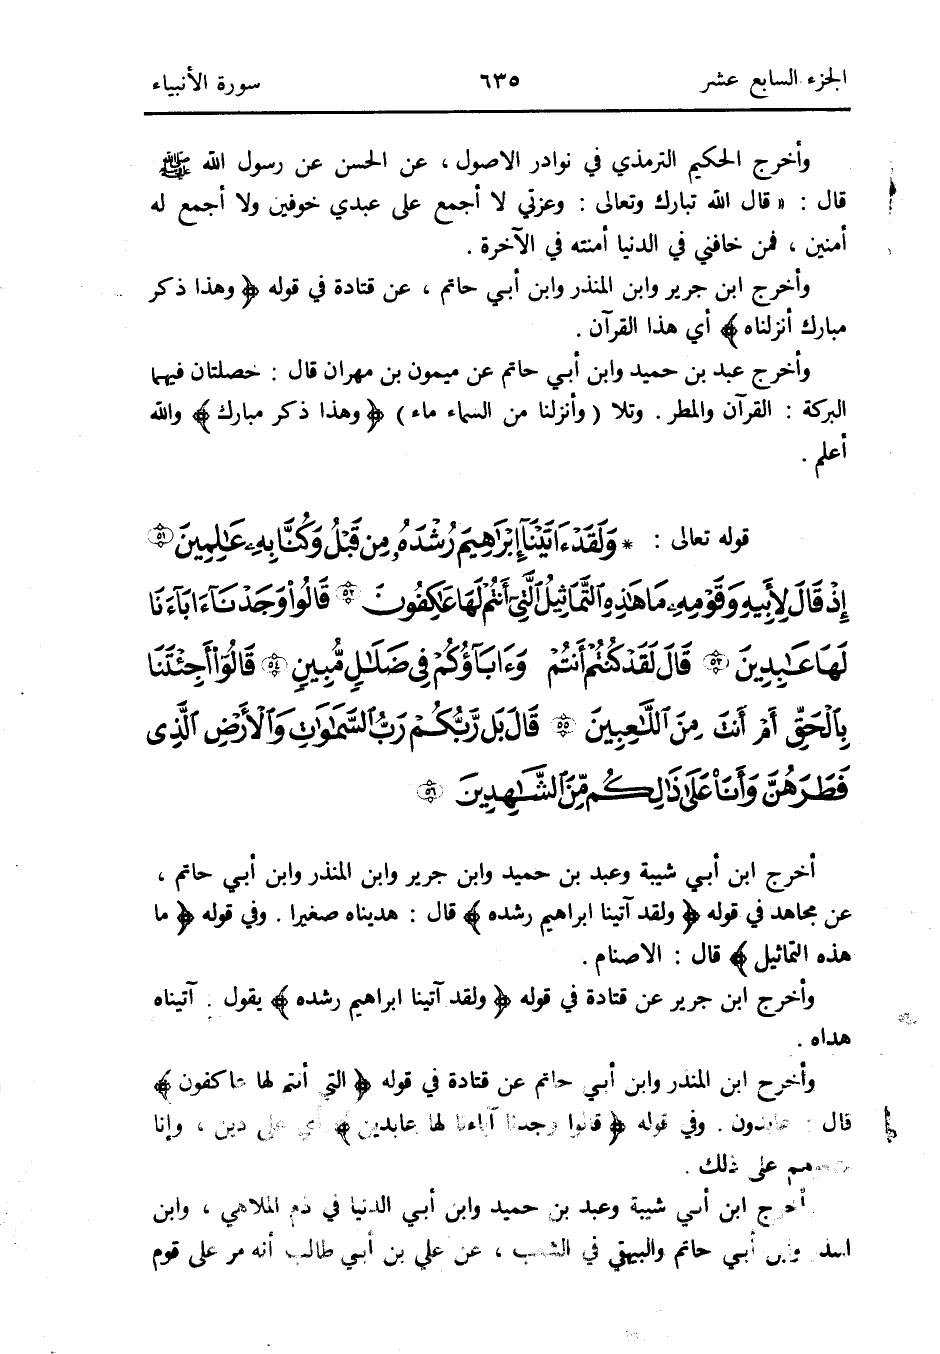 الجزء السابع عشر ٦٣٥ سورة الأنبياء
وأخرج الحكيم الترمذي في نوادر الاصول ، عن الحسن عن رسول الله ﷺ
قال : « قال الله تبارك وتعالى : وعزتي لا أجمع على عبدي خوفين ولا أجمع له
أمنين ، فمن خافني في الدنيا أمنته في الآخرة .
وأخرج ابن جرير وابن المنذر وابن أبي حاتم ، عن قتادة في قوله ﴿ وهذا ذكر
مبارك أنزلناه ﴾ أي هذا القرآن .
وأخرج عبد بن حميد وابن أبي حاتم عن ميمون بن مهران قال : خصلتان فيهما
البركة : القرآن والمطر . وتلا ( وأنزلنا من السماء ماء ) ﴿ وهذا ذكر مبارك ﴾ والله
أعلم .
قوله تعالى : * وَلَقَدْ ءَاتَيْنَآ إِبْرَٰهِيمَ رُشْدَهُۥ مِن قَبْلُ وَكُنَّا بِهِۦ عَـٰلِمِينَ ٥١
إِذْ قَالَ لِأَبِيهِ وَقَوْمِهِۦ مَا هَـٰذِهِ ٱلتَّمَاثِيلُ ٱلَّتِىٓ أَنتُمْ لَهَا عَـٰكِفُونَ ٥٢ قَالُوا۟ وَجَدْنَآ ءَابَآءَنَا
لَهَا عَـٰبِدِينَ ٥٣ قَالَ لَقَدْ كُنتُمْ أَنتُمْ وَءَابَآؤُكُمْ فِى ضَلَـٰلٍ مُّبِينٍ ٥٤ قَالُوٓا۟ أَجِئْتَنَا
بِٱلْحَقِّ أَمْ أَنتَ مِنَ ٱللَّـٰعِبِينَ ٥٥ قَالَ بَل رَّبُّكُمْ رَبُّ ٱلسَّمَـٰوَٰتِ وَٱلْأَرْضِ ٱلَّذِى
فَطَرَهُنَّ وَأَنَا۠ عَلَىٰ ذَٰلِكُم مِّنَ ٱلشَّـٰهِدِينَ ٥٦
أخرج ابن أبي شيبة وعبد بن حميد وابن جرير وابن المنذر وابن أبي حاتم ،
عن مجاهد في قوله ﴿ ولقد آتينا ابراهيم رشده ﴾ قال : هديناه صغيرا . وفي قوله ﴿ ما
هذه التماثيل ﴾ قال : الاصنام .
وأخرج ابن جرير عن قتادة في قوله ﴿ ولقد آتينا ابراهيم رشده ﴾ يقول : آتيناه
هداه .
وأخرج ابن المنذر وابن أبي حاتم عن قتادة في قوله ﴿ التي أنتم لها عاكفون ﴾
قال : عابدون . وفي قوله ﴿ قالوا وجدنا آباءنا لها عابدين ﴾ أي على دين ، وإنا
على ذلك .
أخرج ابن أبي شيبة وعبد بن حميد وابن أبي الدنيا في ذم الملاهي ، وابن
المنذر وابن أبي حاتم والبيهقي في الشعب ، عن علي بن أبي طالب أنه مر على قوم